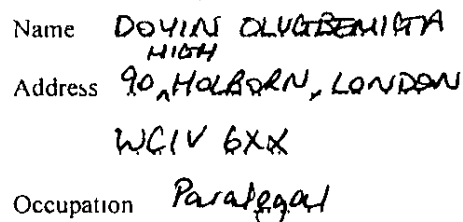 Name DOYIN OLUGBEMIGA
Address 90, HIGH HOLBORN, LONDON
WC1V 6XX
Occupation Paralegal